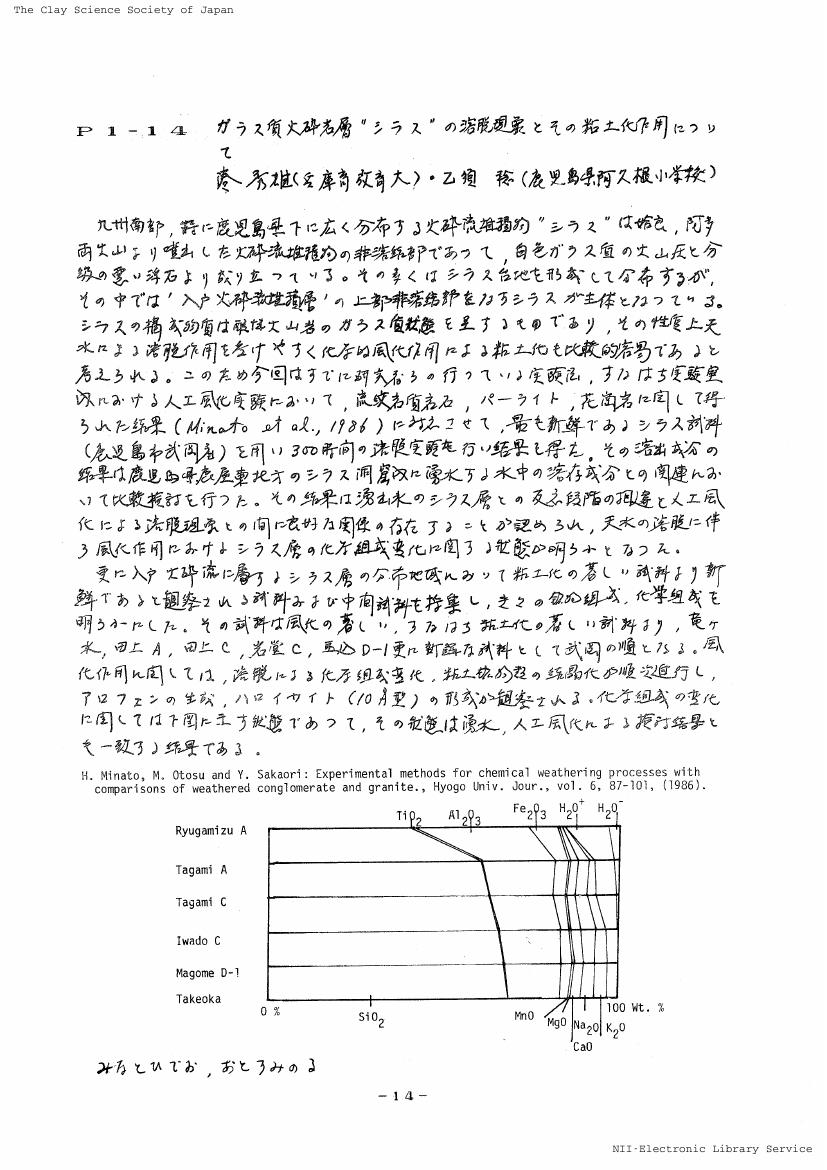 The Clay Science Society of Japan
P1-14 ガラス質火砕岩層"シラス"の溶脱現象とその粘土化作用につい
て
湊 秀雄(兵庫教育大)・乙須 稔(鹿児島県阿久根小学校)
九州南部,特に鹿児島県下に広く分布する火砕流堆積物"シラス"は姶良,阿多
両火山より噴出した火砕流堆積物の非溶結部であって,白色ガラス質の火山灰と分
級の悪い浮石より成り立っている。その多くはシラス台地を形成して分布するが,
その中では'入戸火砕流堆積層'の上部非溶結部をなすシラスが主体となっている。
シラスの構成物質は酸性火山岩のガラス質状態を呈するものであり,その性質上天
水による溶脱作用を受けやすく化学的風化作用による粘土化も比較的容易であると
考えられる。このため今回はすでに研究者らの行っている実験法,すなはち実験室
内における人工風化実験において,流紋岩質岩石,パーライト,花崗岩に関して得
られた結果(Minato et al., 1986)に対応させて,最も新鮮であるシラス試料
(鹿児島市武岡産)を用い300時間の溶脱実験を行い結果を得た。その溶出成分の
結果は鹿児島県鹿屋東北方のシラス洞窟内に湧水する水中の溶存成分との関連にお
いて比較検討を行った。その結果は湧出水のシラス層との反応段階の相違と人工風
化による溶脱現象との間に良好な関係の存在することが認められ,天水の溶脱に伴
う風化作用におけるシラス層の化学組成変化に関する状態が明らかとなった。
更に入戸火砕流に属するシラス層の分布地域において粘土化の著しい試料より新
鮮であると観察される試料および中間試料を採集し,夫々の鉱物組成,化学組成を
明らかにした。その試料は風化の著しい,すなはち粘土化の著しい試料より,竜ヶ
水,田上A,田上C,岩堂C,馬込D-1更に新鮮な試料として武岡の順となる。風
化作用に関しては,溶脱による化学組成変化,粘土鉱物型の結晶化が順次進行し,
アロフェンの生成,ハロイサイト(10Å型)の形成が観察される。化学組成の変化
に関しては下図に示す状態であって,その状態は湧水,人工風化による検討結果と
も一致する結果である。
H. Minato, M. Otosu and Y. Sakaori: Experimental methods for chemical weathering processes with
comparisons of weathered conglomerate and granite., Hyogo Univ. Jour., vol. 6, 87-101, (1986).
TiO2 Al2O3 Fe2O3 H2O+ H2O-
Ryugamizu A
Tagami A
Tagami C
Iwado C
Magome D-1
Takeoka
0 % SiO2 MnO MgO CaO Na2O K2O 100 Wt. %
みなとひでお,おとすみのる
-14-
NII-Electronic Library Service